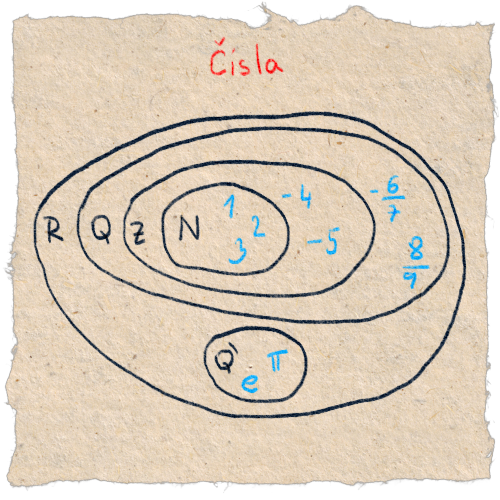 Čísla
R Q Z N 1 2 3 -4 -5 -6/7 8/9
Q' e π